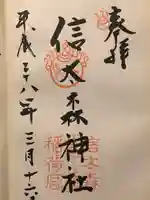 奉拝
信太森神社
平成二十八年三月十六日